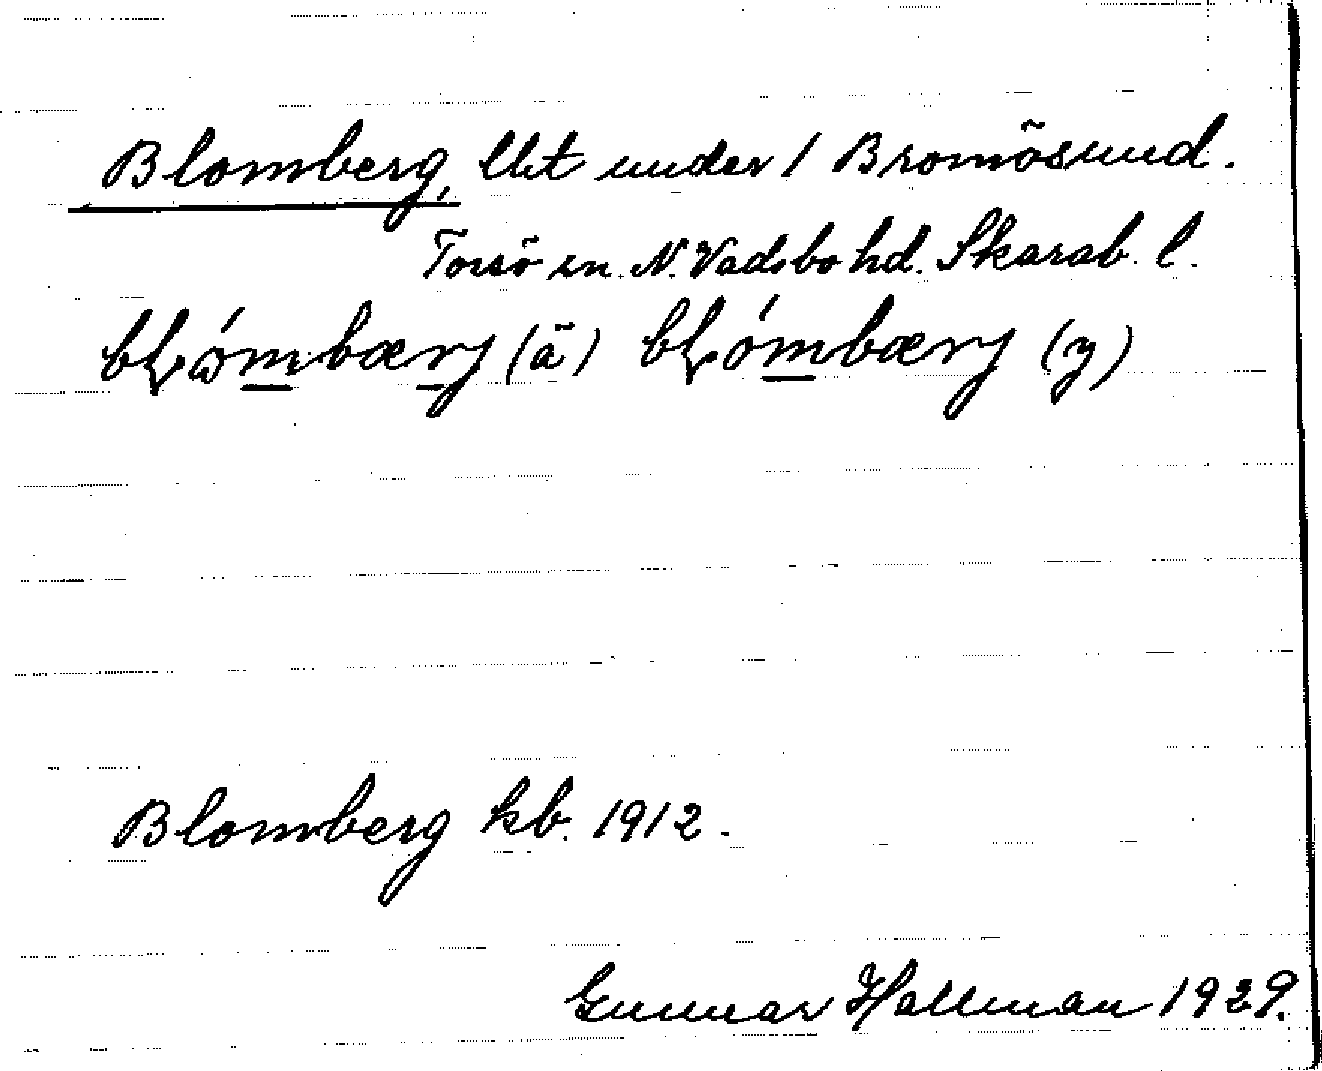 Blomberg, lht under 1 Bromösund.
Torsö sn. N. Vadsbo hd. Skarab. l.
(ä) (y)
Blomberg kb. 1912.
Gunnar Hallman 1929.